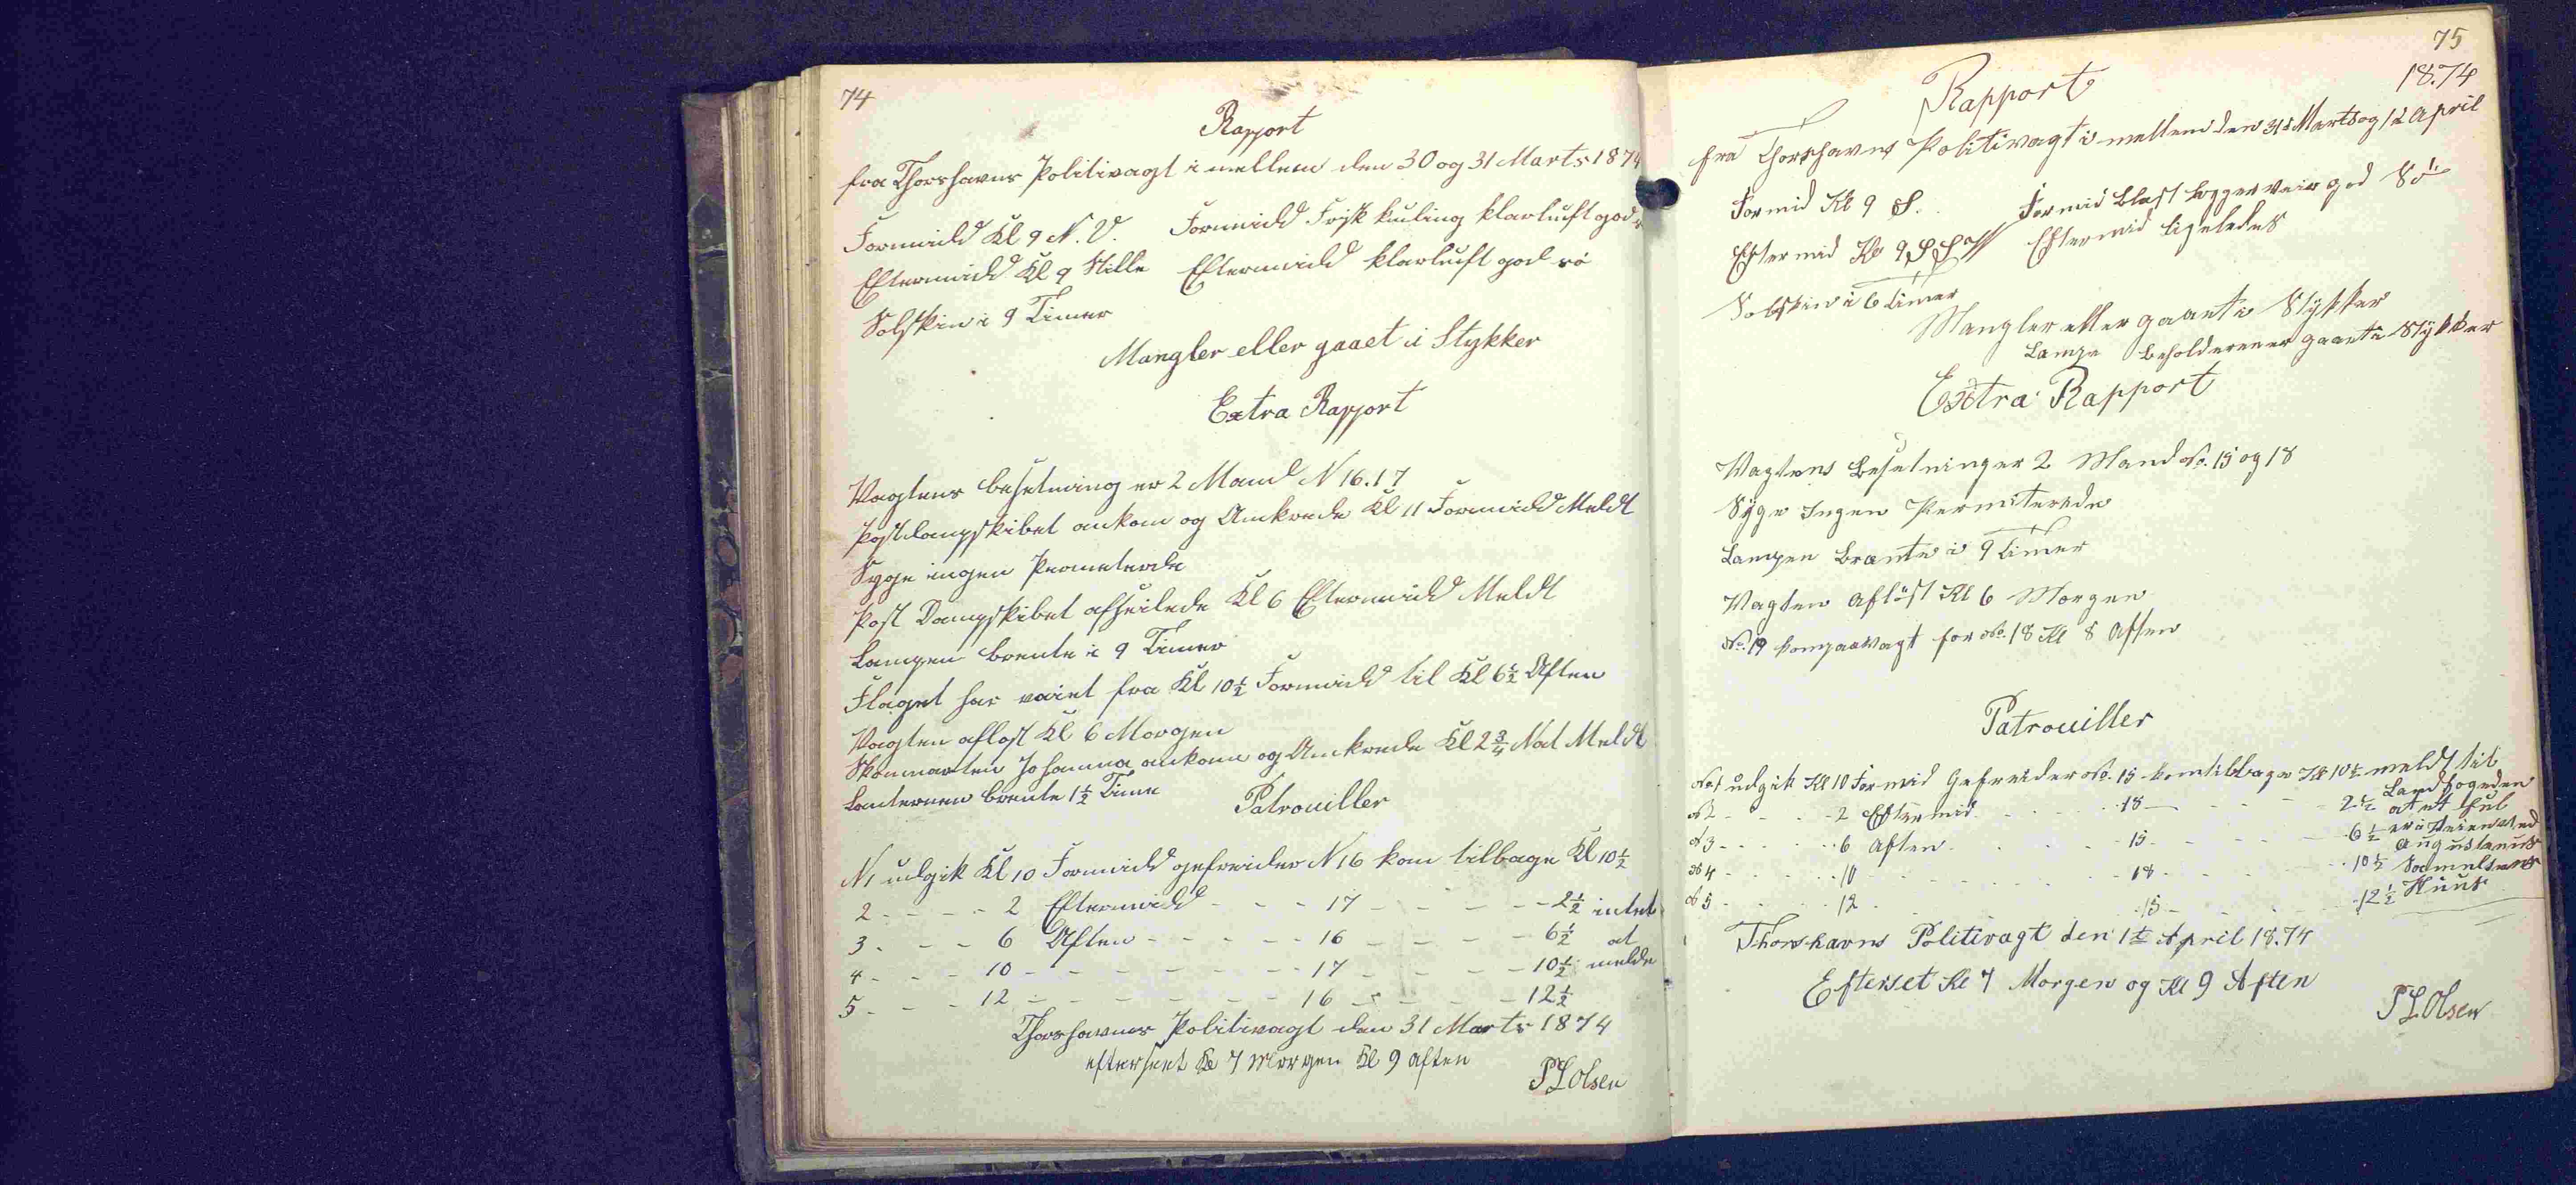 74
Rapport
fra Thorshavns Politivagt i mellem den 30 og 31 Marts 1874
Formidd Kl 9 N. V. Formidd Frisk kuling klarluft god
Eftermidd Kl 9 Stille Eftermidd klarluft god sö
Solskin i 9 Timer
Mangler eller gaaet i Stykker
Extra Rapport
Vagtens besetning er 2 Mand N 16. 17
Postdampskibet ankom og Ankrede Kl 11 Formidd Meldt
Syge ingen Permeterede
Post Dampskibet afseilede Kl 6 Eftermidd Meldt
Lampen brente i 9 Timer
Flaget har vaiet fra Kl 10½ Formidd til Kl 6½ Aften
Vagten aflost Kl 6 Morgen
Skonnarten Johanna ankom og Ankrede Kl 2¾ Nat Meldt
Lanternen brente 1½ Time
Patrouiller
N1 udgik Kl 10 Formidd gefreider N 16 kom tilbage Kl 10½
2 - - - - 2 Eftermidd - - - 17 - - - - - 2½ intet
3 - - - 6 Aften - - - - - 16 - - - - - 6½ at
4 - - - 10 - - - - - - - 17 - - - - - 10½ melde
5 - - - 12 - - - - - - - 16 - - - - - 12½
Thorshavns Politivagt den 31 Marts 1874
efterseet Kl 7 Morgen Kl 9 Aften
P L Olsen
75
Rapport
18.74
fra Thorshavns Politivagt i mellem den 31s Marts og 1te April
Formid Kl 9 S. Formid Blast bygger Veir god Sö
Eftermid Kl 9 S S V Eftermid ligeledes
Solskin i 6 Timer
Mangler eller gaaet i Stykker
Lampe beholderen er gaaet i Stykker
Extra Rapport
Vagtens Besetning er 2 Mand No. 15 og 18
Syge Ingen Permiterede
Lampen Brante i 9 Timer
Vagten aflöst Kl 6 Morgen
No. 19 kom paa Vagt for No. 18 Kl 8 Aften
Patrouiller
No 1 udgik Kl 10 Formid Gefreider No. 15 kom tilbage Kl 10½ meldt til
Landfogeden
N 2 - - - - 2 Eftermid - - - - 18 - - - - - 2½ at et Hul
N 3 - - - - 6 Aften - - - - 15 - - - - - 6½ er i Veien ved
Augustenus
N 4 - - - - 10 - - - - - 18 - - - - - 10½ Samelsens
N 5 - - - - 12 - - - - - 15 - - - - - 12½ Huus
Thorshavns Politivagt den 1te April 18.74
Efterset Kl 7 Morgen og Kl 9 Aften
P L Olsen